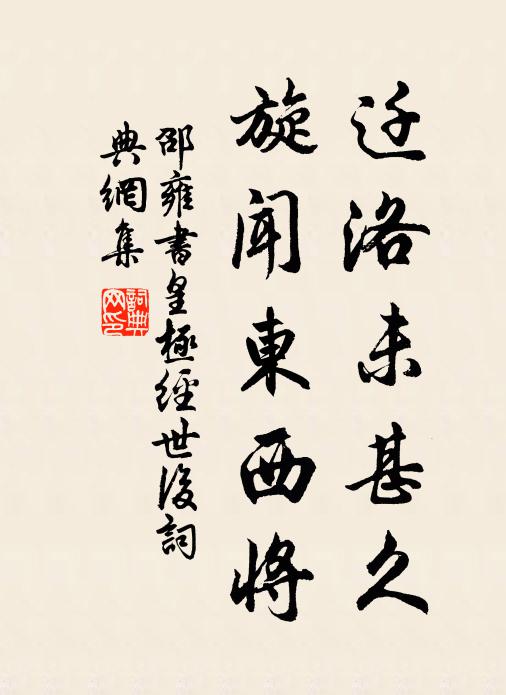 迁洛未甚久
旋闻東西將
邵雍書皇極經世後詞
典網集
詞典网印